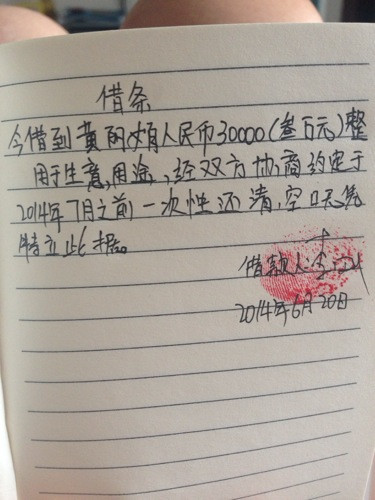 借条
今借到黄人民币30000(叁百元)整
用于生意,用途,经双方协商约定于
2014年7月之前一次性还清,空口无凭
特立此据。
借款人:李
2014年6月20日